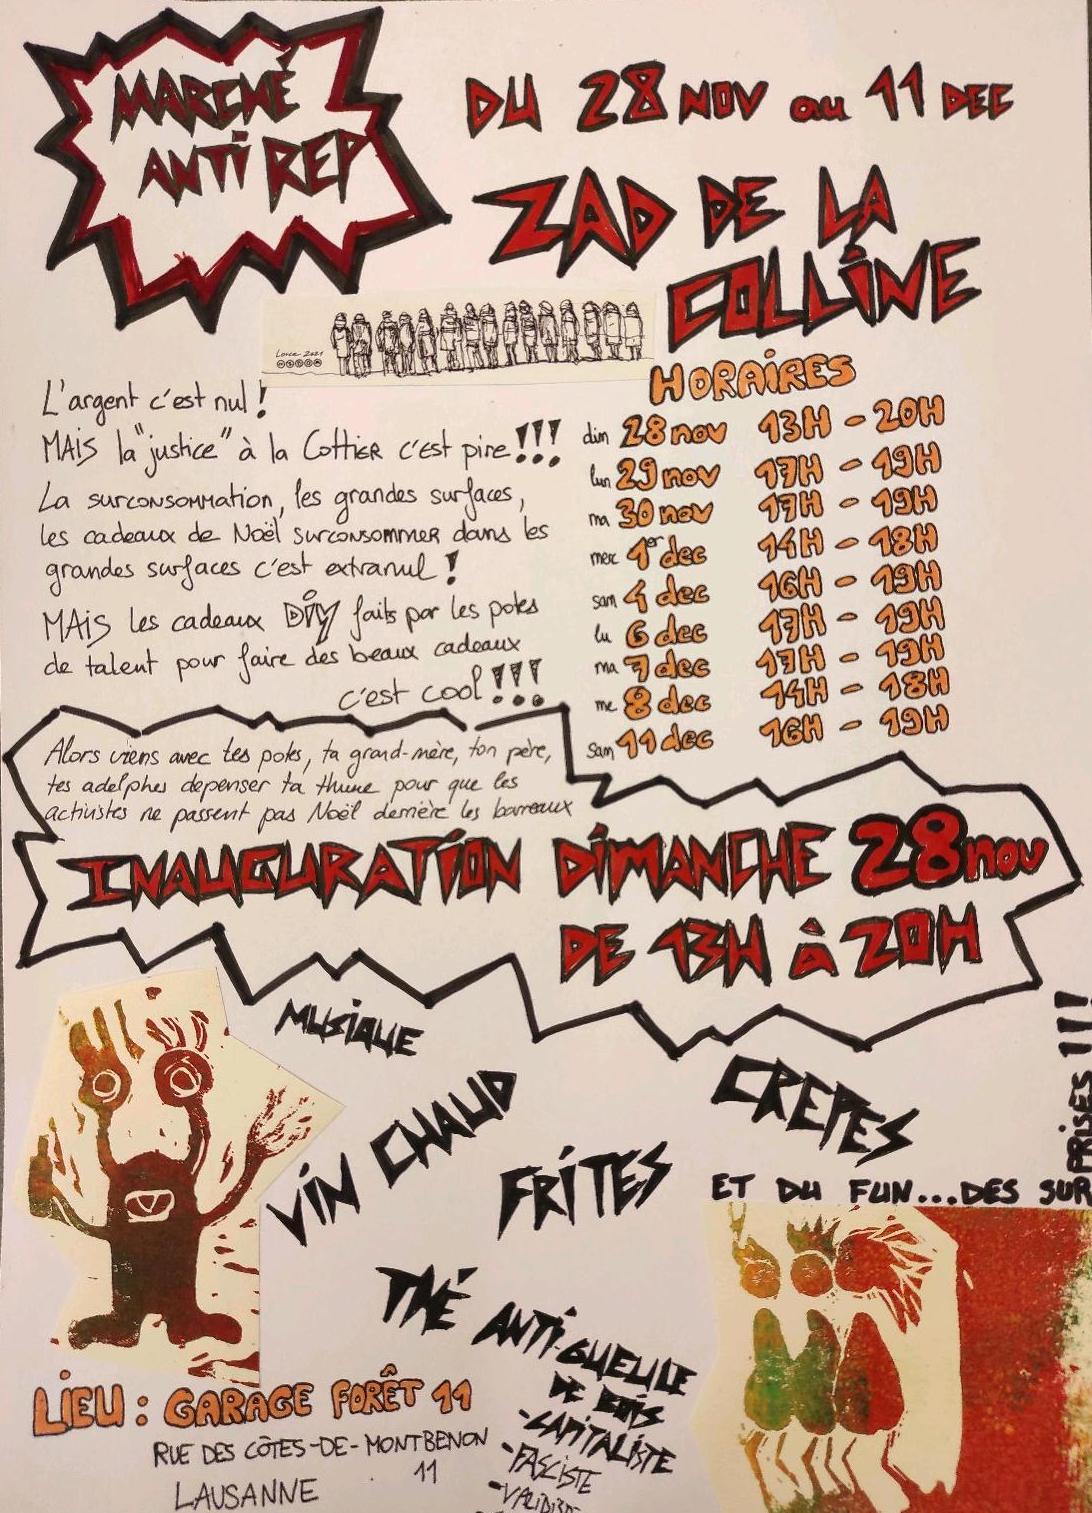 MARCHÉ
ANTI REP
DU 28 NOV au 11 DEC
ZAD DE LA
COLLINE
Lorca 2021
HORAIRES
dim 28 nov 13H - 20H
lun 29 nov 17H - 19H
ma 30 nov 17H - 19H
merc 1er dec 14H - 18H
sam 4 dec 16H - 19H
lu 6 dec 17H - 19H
ma 7 dec 17H - 19H
me 8 dec 14H - 18H
sam 11 dec 16H - 19H
L'argent c'est nul !
MAIS la "justice" à la Cottier c'est pire !!!
La surconsommation, les grandes surfaces,
les cadeaux de Noël surconsommer dans les
grandes surfaces c'est extranul !
MAIS les cadeaux DIY faits par les potes
de talent pour faire des beaux cadeaux
c'est cool !!!
Alors viens avec tes potes, ta grand-mère, ton père,
tes adelphes depenser ta thune pour que les
activistes ne passent pas Noël derrière les barreaux
INAUGURATION DIMANCHE 28 nov
DE 13H à 20H
MUSIQUE
VIN CHAUD
CREPES
FRITES
ET DU FUN...DES SUR
PRISES !!!
THÉ ANTI-GUEULE
DE BOIS
-CAPITALISTE
-FASCISTE
LIEU : GARAGE FORÊT 11
RUE DES CÔTES-DE-MONTBENON
11
LAUSANNE